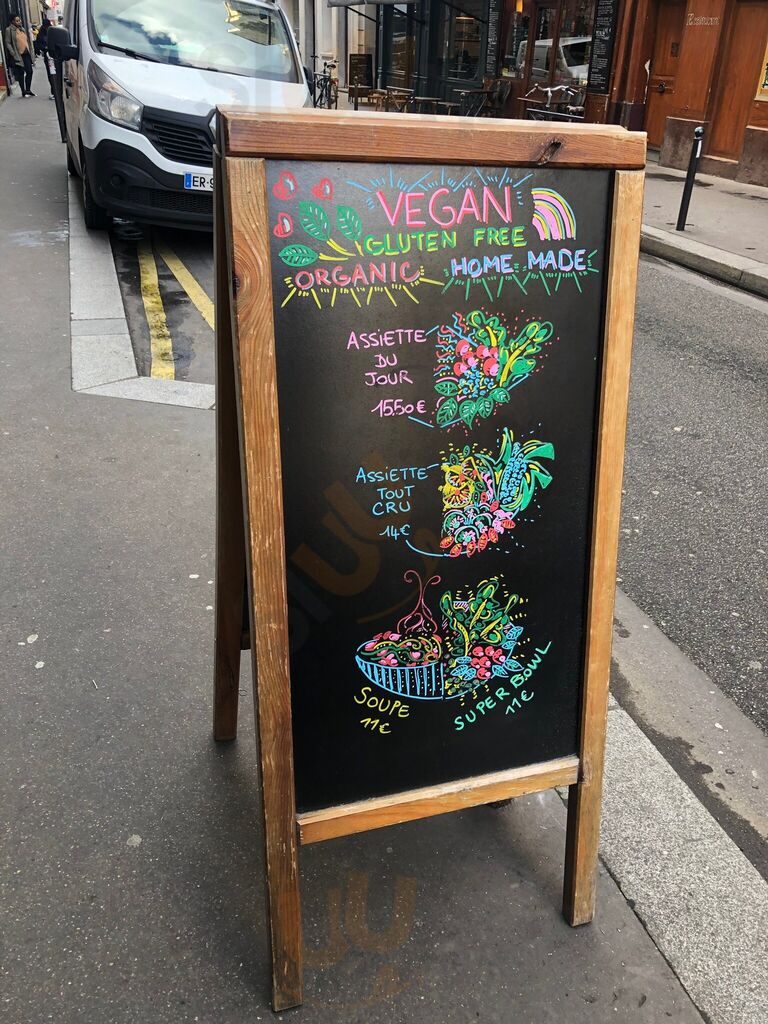 VEGAN
GLUTEN FREE
ORGANIC HOME MADE
ASSIETTE
DU
JOUR
15.50€
ASSIETTE
TOUT
CRU
14€
SOUPE
11€
SUPER BOWL
11€
ER-9